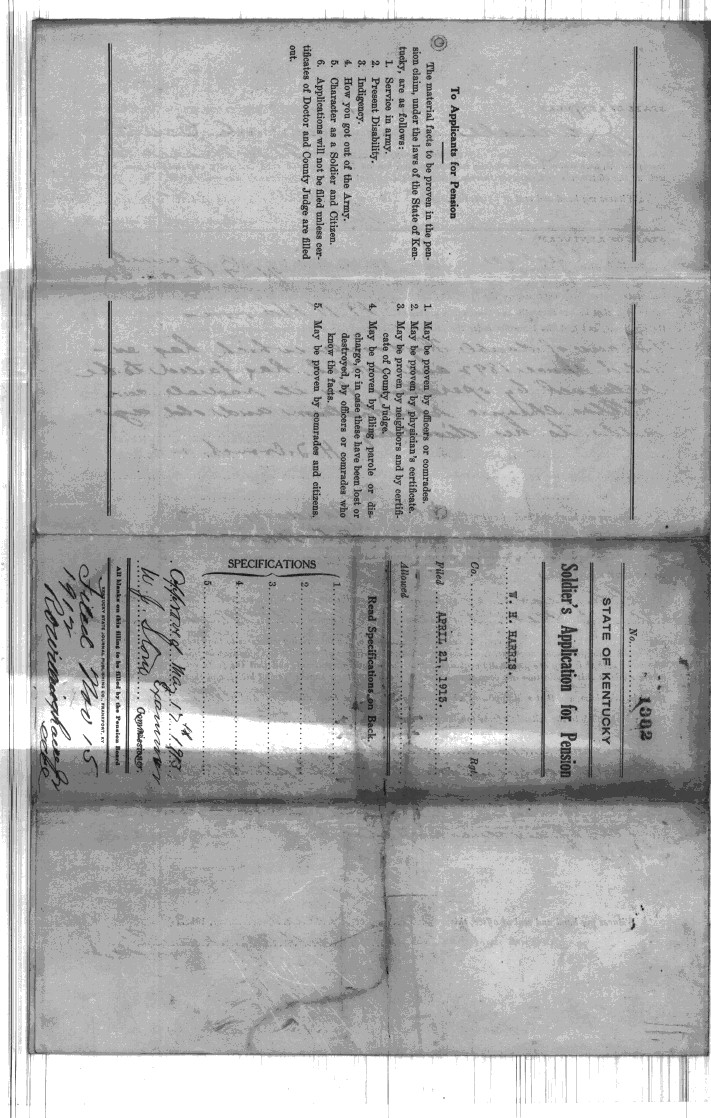 To Applicants for Pension
The material facts to be proven in the pen-
sion claim, under the laws of the State of Ken-
tucky, are as follows:
1. Service in army.
2. Present Disability.
3. Indigency.
4. How you got out of the Army.
5. Character as a Soldier and Citizen.
6. Applications will not be filed unless cer-
tificates of Doctor and County Judge are filled
out.
1. May be proven by officers or comrades.
2. May be proven by physician's certificate.
3. May be proven by neighbors and by certifi-
cate of County Judge.
4. May be proven by filing parole or dis-
charge, or in case these have been lost or
destroyed, by officers or comrades who
know the facts.
5. May be proven by comrades and citizens.
No. 1382
STATE OF KENTUCKY
Soldier's Application for Pension
W. H. HARRIS.
Co. Rgt.
Filed APRIL 21, 1915.
Allowed
Read Specifications on Back.
SPECIFICATIONS
1.
2.
3.
4.
5.
Approved May 17th 1915.
W. J. Stone Examiner
Commissioner.
All blanks on this filing to be filled by the Pension Board
KENTUCKY STATE JOURNAL PUBLISHING CO., FRANKFORT, KY
Filed Nov 15
1912